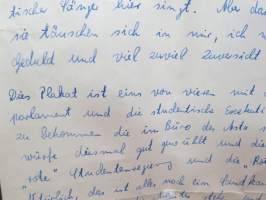 tischer Sänger hier singt. Aber da
sie täuschen sich in mir, ich
Geduld und viel zuviel Zuversicht
Dies Plakat ist eins von vielen mit
parlament und die studentische Exekuti
zu bekommen die im Büro des Asta
diesmal gut gewühlt und die
Studentenregierung und die
das ist alles noch ein